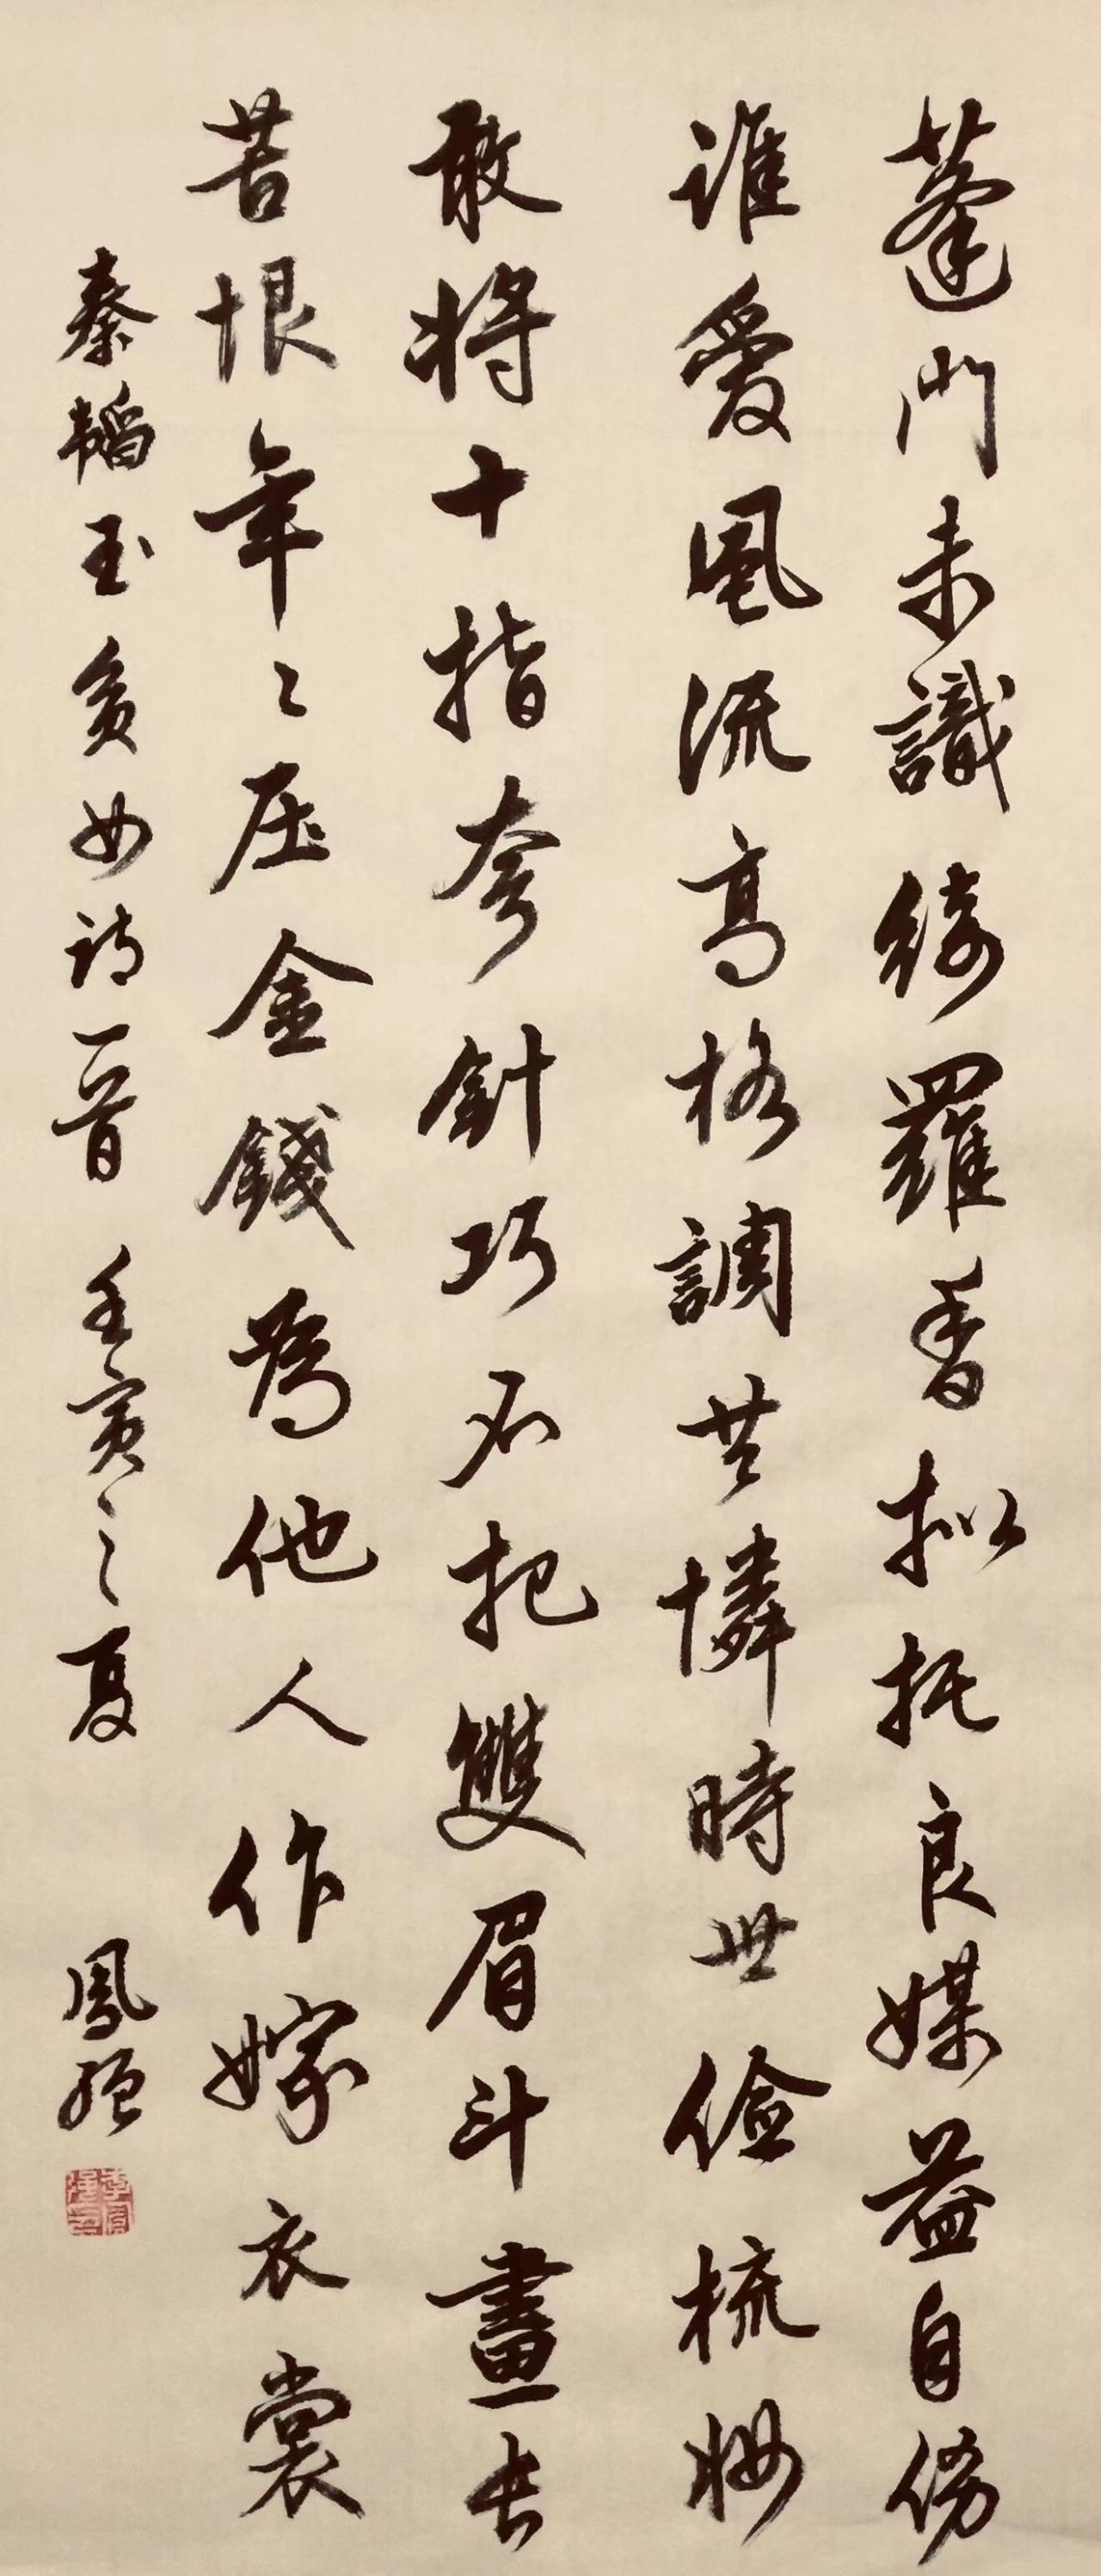 蓬門未識綺羅香拟托良媒益自傷
誰愛風流高格調共憐時世儉梳妝
敢将十指夸針巧不把雙眉斗畫長
苦恨年々压金錢為他人作嫁衣裳
秦韜玉貧女詩一首 壬寅之夏 鳳強